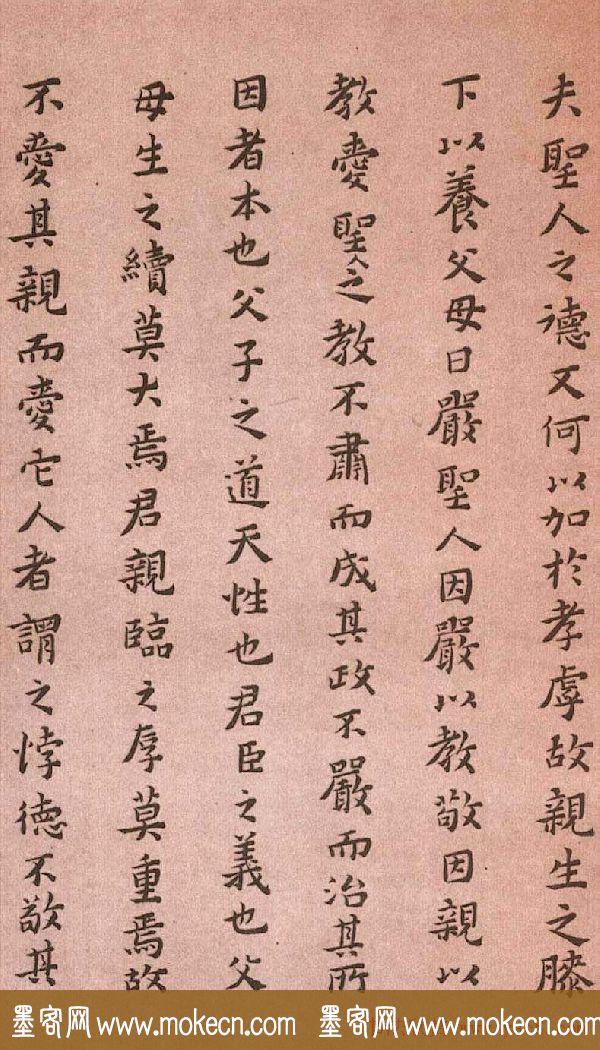 夫聖人之德又何以加於孝虖故親生之膝
下以養父母日嚴聖人因嚴以教敬因親以
教愛聖人之教不肅而成其政不嚴而治其所
因者本也父子之道天性也君臣之義也父
母生之續莫大焉君親臨之厚莫重焉故
不愛其親而愛它人者謂之悖德不敬其
墨客网 www.mokecn.com 墨客网 www.mokecn.com